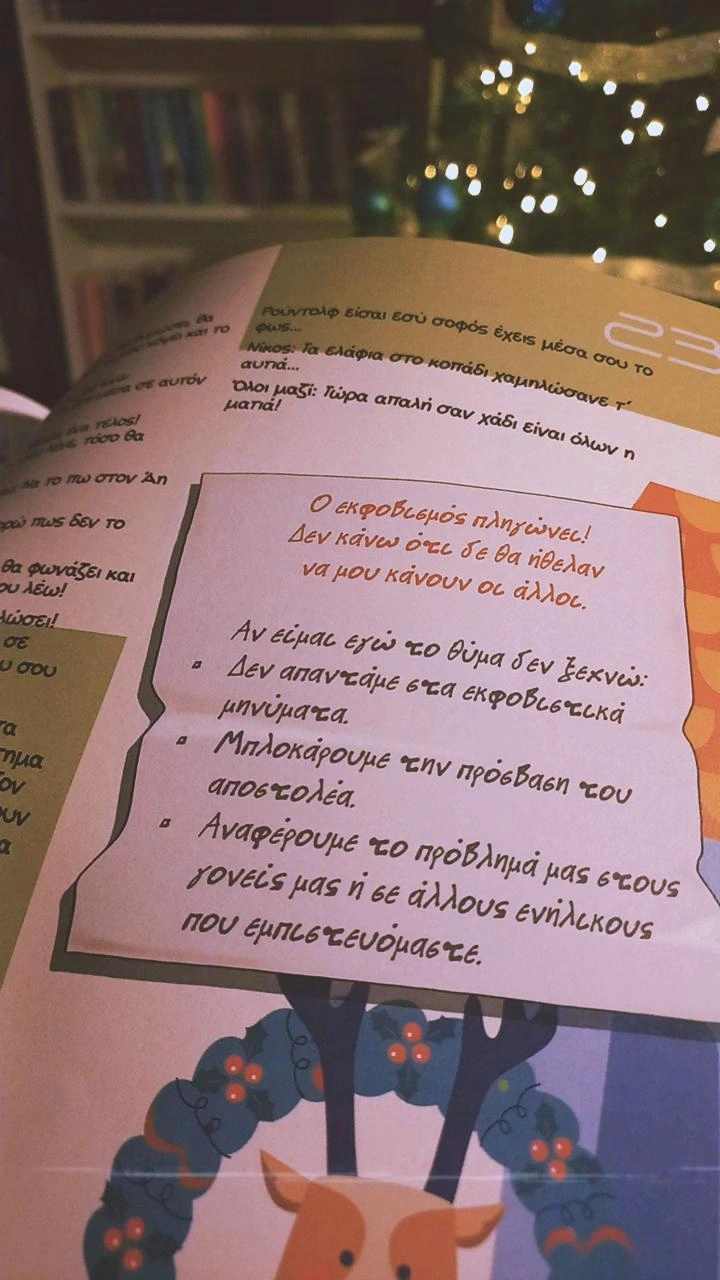 θα
και το
σε αυτόν
ένα τέλος!
τόσο θα
να το πω στον Άη
πως δεν το
θα φωνάζει και
ου λέω!
λώσει!
σε
υ σου
τα
τημα
ον
ουν
α
Ρούντολφ είσαι εσύ σοφός έχεις μέσα σου το
φως...
Νίκος: Τα ελάφια στο κοπάδι χαμηλώσανε τ'
αυτιά...
Όλοι μαζί: Τώρα απαλή σαν χάδι είναι όλων η
ματιά!
23
Ο εκφοβισμός πληγώνει!
Δεν κάνω ότι δε θα ήθελαν
να μου κάνουν οι άλλοι.
Αν είμαι εγώ το θύμα δεν ξεχνώ:
▫ Δεν απαντάμε στα εκφοβιστικά
μηνύματα.
▫ Μπλοκάρουμε την πρόσβαση του
αποστολέα.
▫ Αναφέρουμε το πρόβλημά μας στους
γονείς μας ή σε άλλους ενήλικους
που εμπιστευόμαστε.